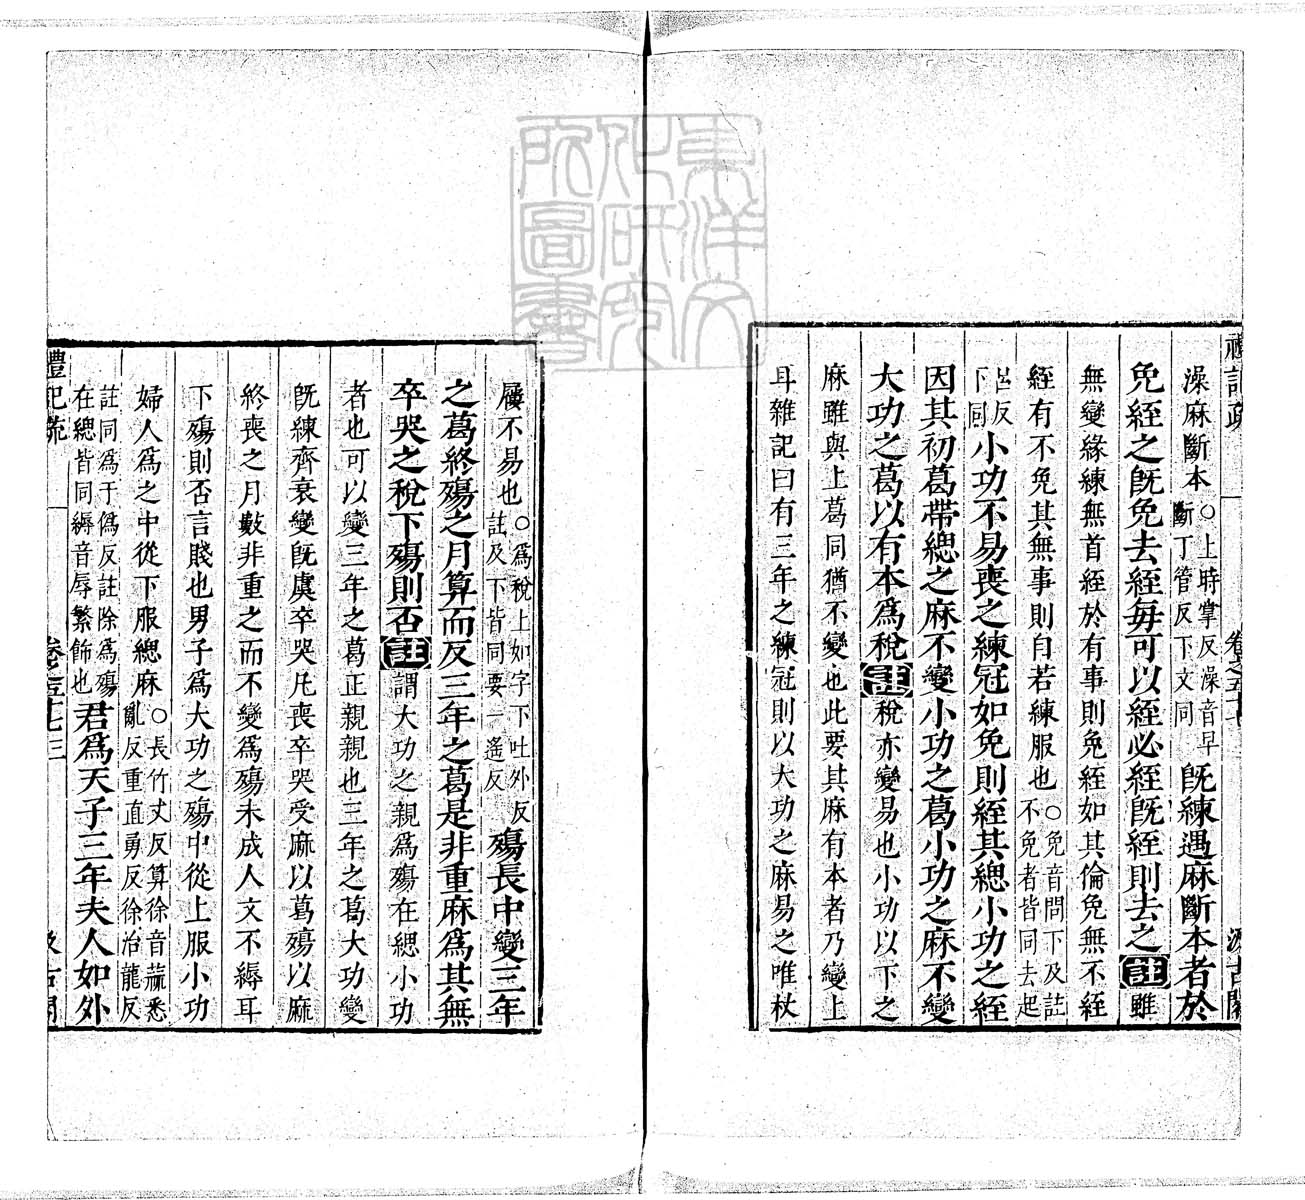 禮記疏 卷之五十七 汲古閣
澡麻斷本○上時掌反澡音早斷丁管反下文同既練遇麻斷本者於
免絰之既免去絰每可以絰必絰既絰則去之註雖
無變緣練無首絰於有事則免絰如其倫免無不絰
絰有不免其無事則自若練服也○免音問下及註不免者皆同去起
呂反下同小功不易喪之練冠如免則絰其緦小功之絰
因其初葛帶緦之麻不變小功之葛小功之麻不變
大功之葛以有本為稅註稅亦變易也小功以下之
麻雖與上葛同猶不變也此要其麻有本者乃變上
耳雜記曰有三年之練冠則以大功之麻易之唯杖
屨不易也○為稅上如字下吐外反註及下皆同要一遙反殤長中變三年
之葛終殤之月算而反三年之葛是非重麻為其無
卒哭之稅下殤則否註謂大功之親為殤在緦小功
者也可以變三年之葛正親親也三年之葛大功變
既練齊衰變既虞卒哭凡喪卒哭受麻以葛殤以麻
終喪之月數非重之而不變為殤未成人文不縟耳
下殤則否言賤也男子為大功之殤中從上服小功
婦人為之中從下服緦麻○長竹丈反算徐音蒜悉亂反重直勇反徐治龍反
註同為于偽反註除為殤在緦皆同縟音辱繁飾也君為天子三年夫人如外
禮記疏 卷之五十七 三 汲古閣